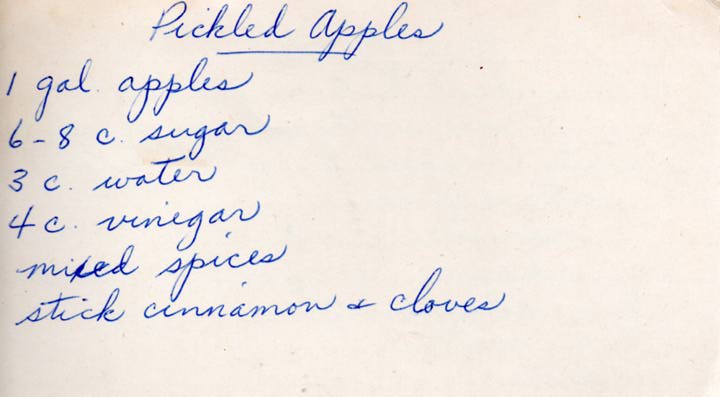 Pickled Apples
1 gal. apples
6-8 c. sugar
3 c. water
4 c. vinegar
mixed spices
stick cinnamon & cloves